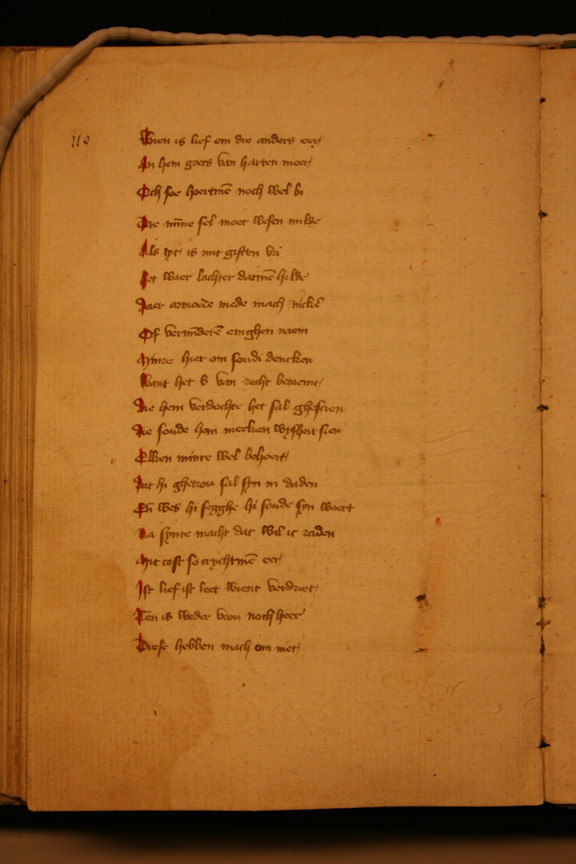 Wien is lief om die anders eer
In hem goets van harten meer
Och soe hoertmē noch wel bi
Die mīne sel moet wesen milde
Als is mit giften vri
Het waer lachter datmē hilde
Daer armoede mede mach
Of vermīderē enighen naem
Minre hier om soudi dencken
Want het v van recht betaemt
Die hem verdochte het sal ghescien
Die soude hem merken wysheit sien
Elken minre wel behoert
Dat hi ghetrou sal syn in daden
Eñ wes hi segghe hi soude syn woert
Na synre macht dat wil ic raden
Mit cost so crychtmē eer
Ist lief ist leet wient verdriet
Ten is weder vrou noch heer
Diese hebben mach om niet